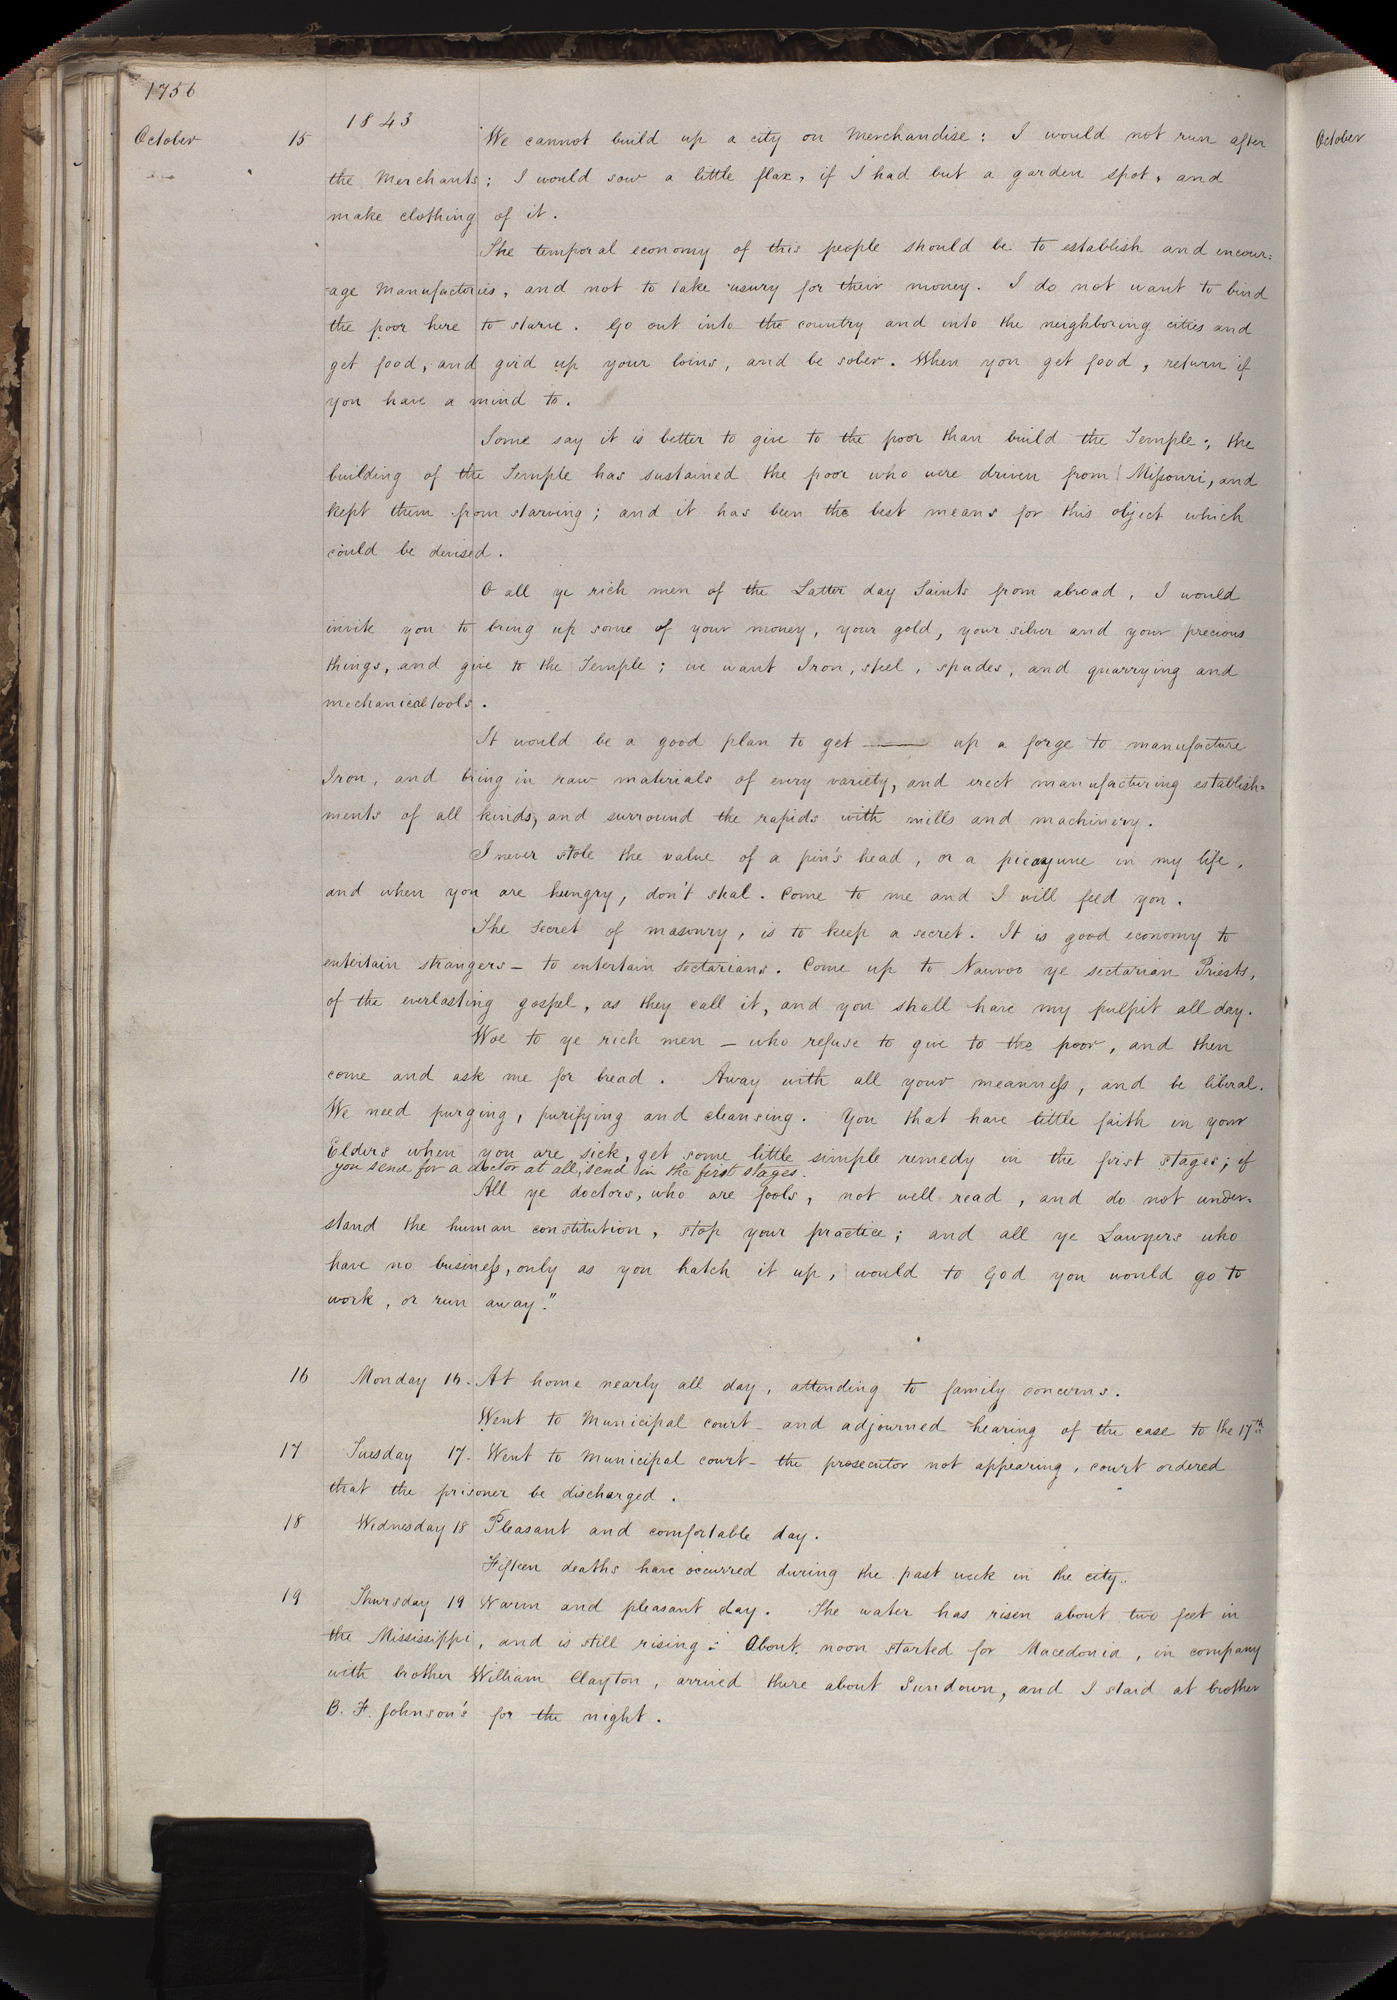 1756
1843
October 15 We cannot build up a city on Merchandise: I would not run after
the Merchants; I would sow a little flax, if I had but a garden spot, and
make clothing of it.
The temporal economy of this people should be to establish and encour=
=age Manufactories, and not to take usury for their money. I do not want to bind
the poor here to starve. Go out into the country and into the neighboring cities and
get food, and gird up your loins, and be sober. When you get food, return if
you have a mind to.
Some say it is better to give to the poor than build the Temple; the
building of the Temple has sustained the poor who were driven from Missouri, and
kept them from starving; and it has been the best means for this object which
could be devised.
O all ye rich men of the Latter day Saints from abroad, I would
invite you to bring up some of your money, your gold, your silver and your precious
things, and give to the Temple; we want Iron, steel, spades, and quarrying and
mechanical tools.
It would be a good plan to get —— up a forge to manufacture
Iron, and bring in raw materials of every variety, and erect manufacturing establish=
ments of all kinds, and surround the rapids with mills and machinery.
I never stole the value of a pin's head, or a picayune in my life,
and when you are hungry, don't steal. Come to me and I will feed you.
The secret of masonry, is to keep a secret. It is good economy to
entertain strangers – to entertain sectarians. Come up to Nauvoo ye sectarian Priests,
of the everlasting gospel, as they call it, and you shall have my pulpit all day.
Woe to ye rich men – who refuse to give to the poor, and then
come and ask me for bread. Away with all your meanness, and be liberal.
We need purging, purifying and cleansing. You that have little faith in your
Elders when you are sick, get some little simple remedy in the first stages; if
you send for a doctor at all, send in the first stages.
All ye doctors, who are fools, not well read, and do not under=
stand the human constitution, stop your practice; and all ye Lawyers who
have no business, only as you hatch it up, would to God you would go to
work, or run away."
16 Monday 16. At home nearly all day, attending to family concerns.
Went to Municipal court – and adjourned hearing of the case to the 17th
17 Tuesday 17. Went to Municipal court – the prosecutor not appearing, court ordered
that the prisoner be discharged.
18 Wednesday 18 Pleasant and comfortable day.
Fifteen deaths have occurred during the past week in the city.
19 Thursday 19 Warm and pleasant day. The water has risen about two feet in
the Mississippi, and is still rising: About noon started for Macedonia, in company
with brother William Clayton, arrived there about Sundown, and I staid at brother
B. F. Johnson's for the night.
October